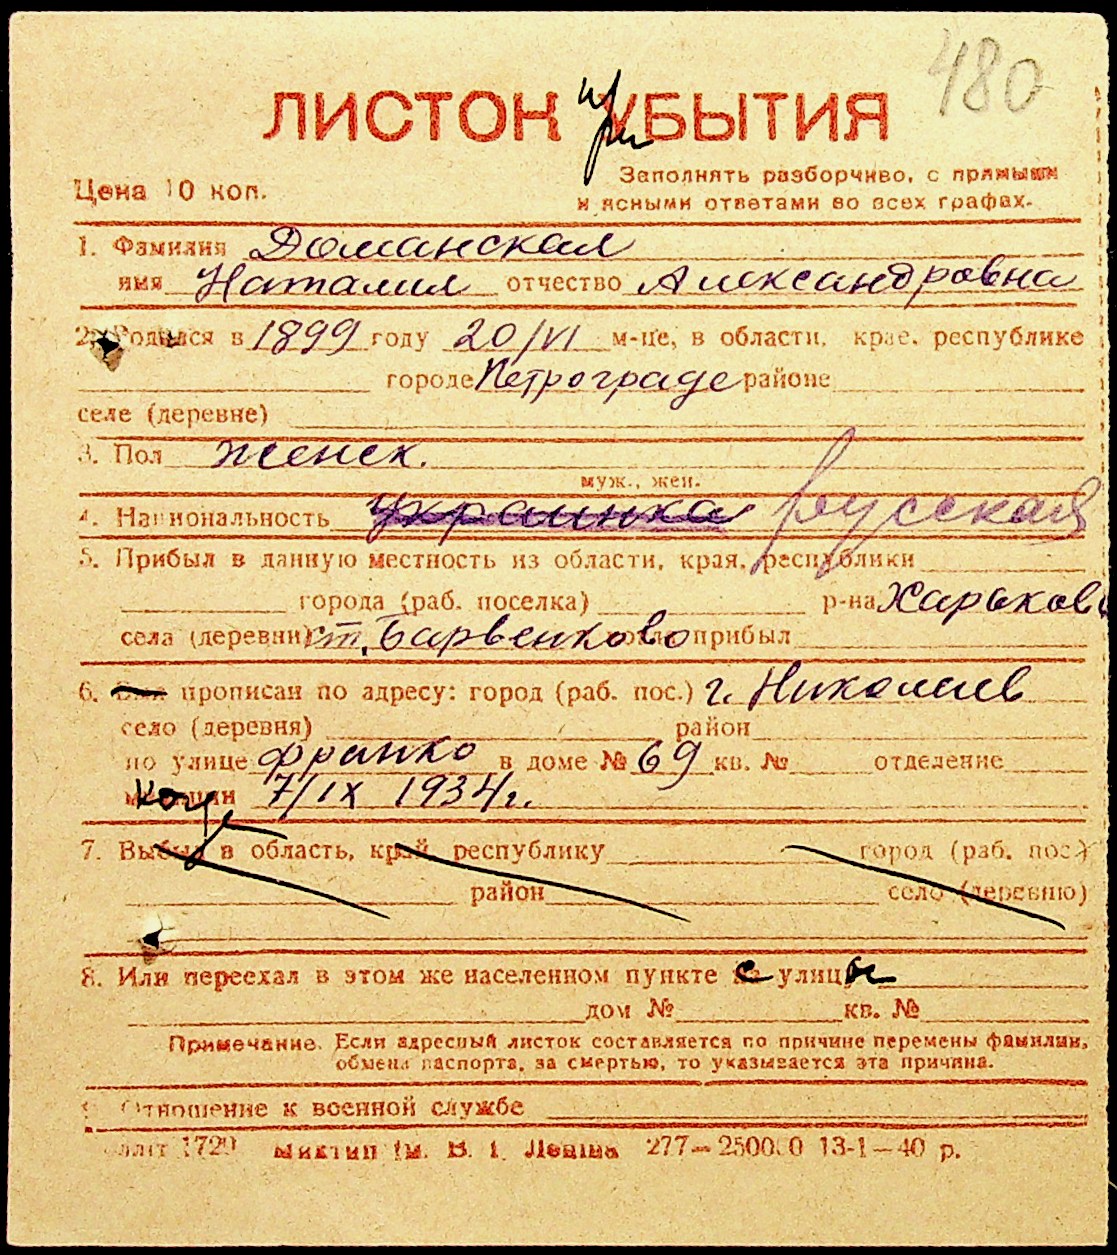 480
ЛИСТОК при УБЫТИЯ
Цена 10 коп.
Заполнять разборчиво, с прямыми
и ясными ответами во всех графах.
1. Фамилия Доманская
имя Наталия отчество Александровна
2. Родился в 1899 году 20/VI м-це, в области, крае, республике
городе Петрограде районе
селе (деревне)
3. Пол женск.
муж., жен.
4. Национальность украинка русская
5. Прибыл в данную местность из области, края, республики
города (раб. поселка) р-на Харьков
села (деревни) ст. Барвенково прибыл
6. прописан по адресу: город (раб. пос.) г. Николаев
село (деревня) район
по улице Франко в доме № 69 кв. № отделение
милиции когда 7/IX 1934 г.
7. Выбыл в область, край, республику город (раб. пос.)
район село (деревню)
8. Или переехал в этом же населенном пункте с улицы
дом № кв. №
Примечание. Если адресный листок составляется по причине перемены фамилии,
обмена паспорта, за смертью, то указывается эта причина.
9. Отношение к военной службе
1729 им. В. І. Леніна 277—250000 13-1—40 р.